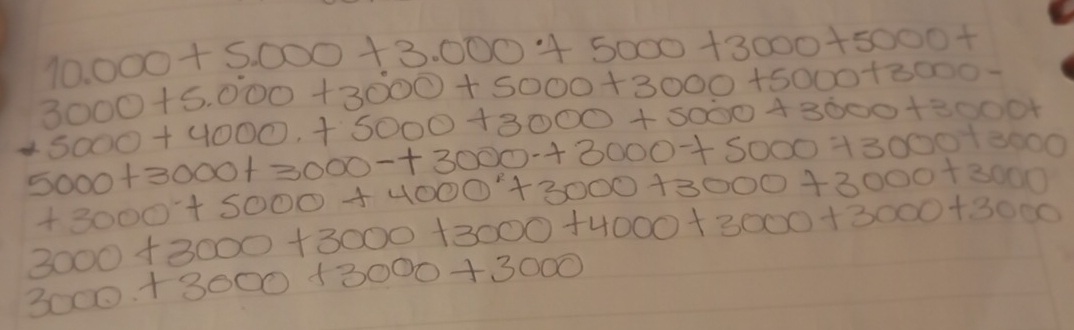 10.000 + 5.000 + 3.000 + 5000 + 3000 + 5000 +
3000 + 5.000 + 3000 + 5000 + 3000 + 5000 + 3000 -
+ 5000 + 4000. + 5000 + 3000 + 5000 + 3000 + 3000 +
5000 + 3000 + 3000 - + 3000 - + 3000 - + 5000 + 3000 + 3000
+ 3000 + 5000 + 4000 + 3000 + 3000 + 3000 + 3000
3000 + 3000 + 3000 + 3000 + 4000 + 3000 + 3000 + 3000
3000. + 3000 + 3000 + 3000